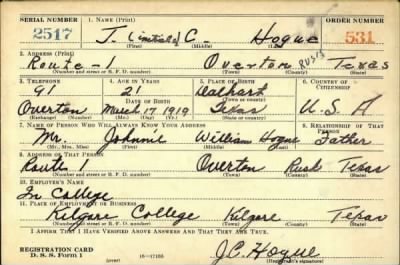 SERIAL NUMBER 1. NAME (Print) ORDER NUMBER
2517 J. (initial of) C. Hogue 531
(First) (Middle) (Last)
2. ADDRESS (Print)
Route-1 Overton Rusk Texas
(Number and street or R. F. D. number) (Town) (County) (State)
3. TELEPHONE 4. AGE IN YEARS 5. PLACE OF BIRTH 6. COUNTRY OF CITIZENSHIP
91 21 Dalhart
DATE OF BIRTH (Town or county)
Overton March 17 1919 Texas U.S.A
(Exchange) (Number) (Mo.) (Day) (Yr.) (State or country)
7. NAME OF PERSON WHO WILL ALWAYS KNOW YOUR ADDRESS 8. RELATIONSHIP OF THAT PERSON
Mr. Johnnie William Hogue Father
(Mr., Mrs., Miss) (First) (Middle) (Last)
9. ADDRESS OF THAT PERSON
Route 1 Overton Rusk Texas
(Number and street or R. F. D. number) (Town) (County) (State)
10. EMPLOYER'S NAME
In College
11. PLACE OF EMPLOYMENT OR BUSINESS
Kilgore College Kilgore Texas
(Number and street or R. F. D. number) (Town) (County) (State)
I AFFIRM THAT I HAVE VERIFIED ABOVE ANSWERS AND THAT THEY ARE TRUE.
REGISTRATION CARD
D. S. S. Form 1 (over) 16—17105 J.C. Hogue